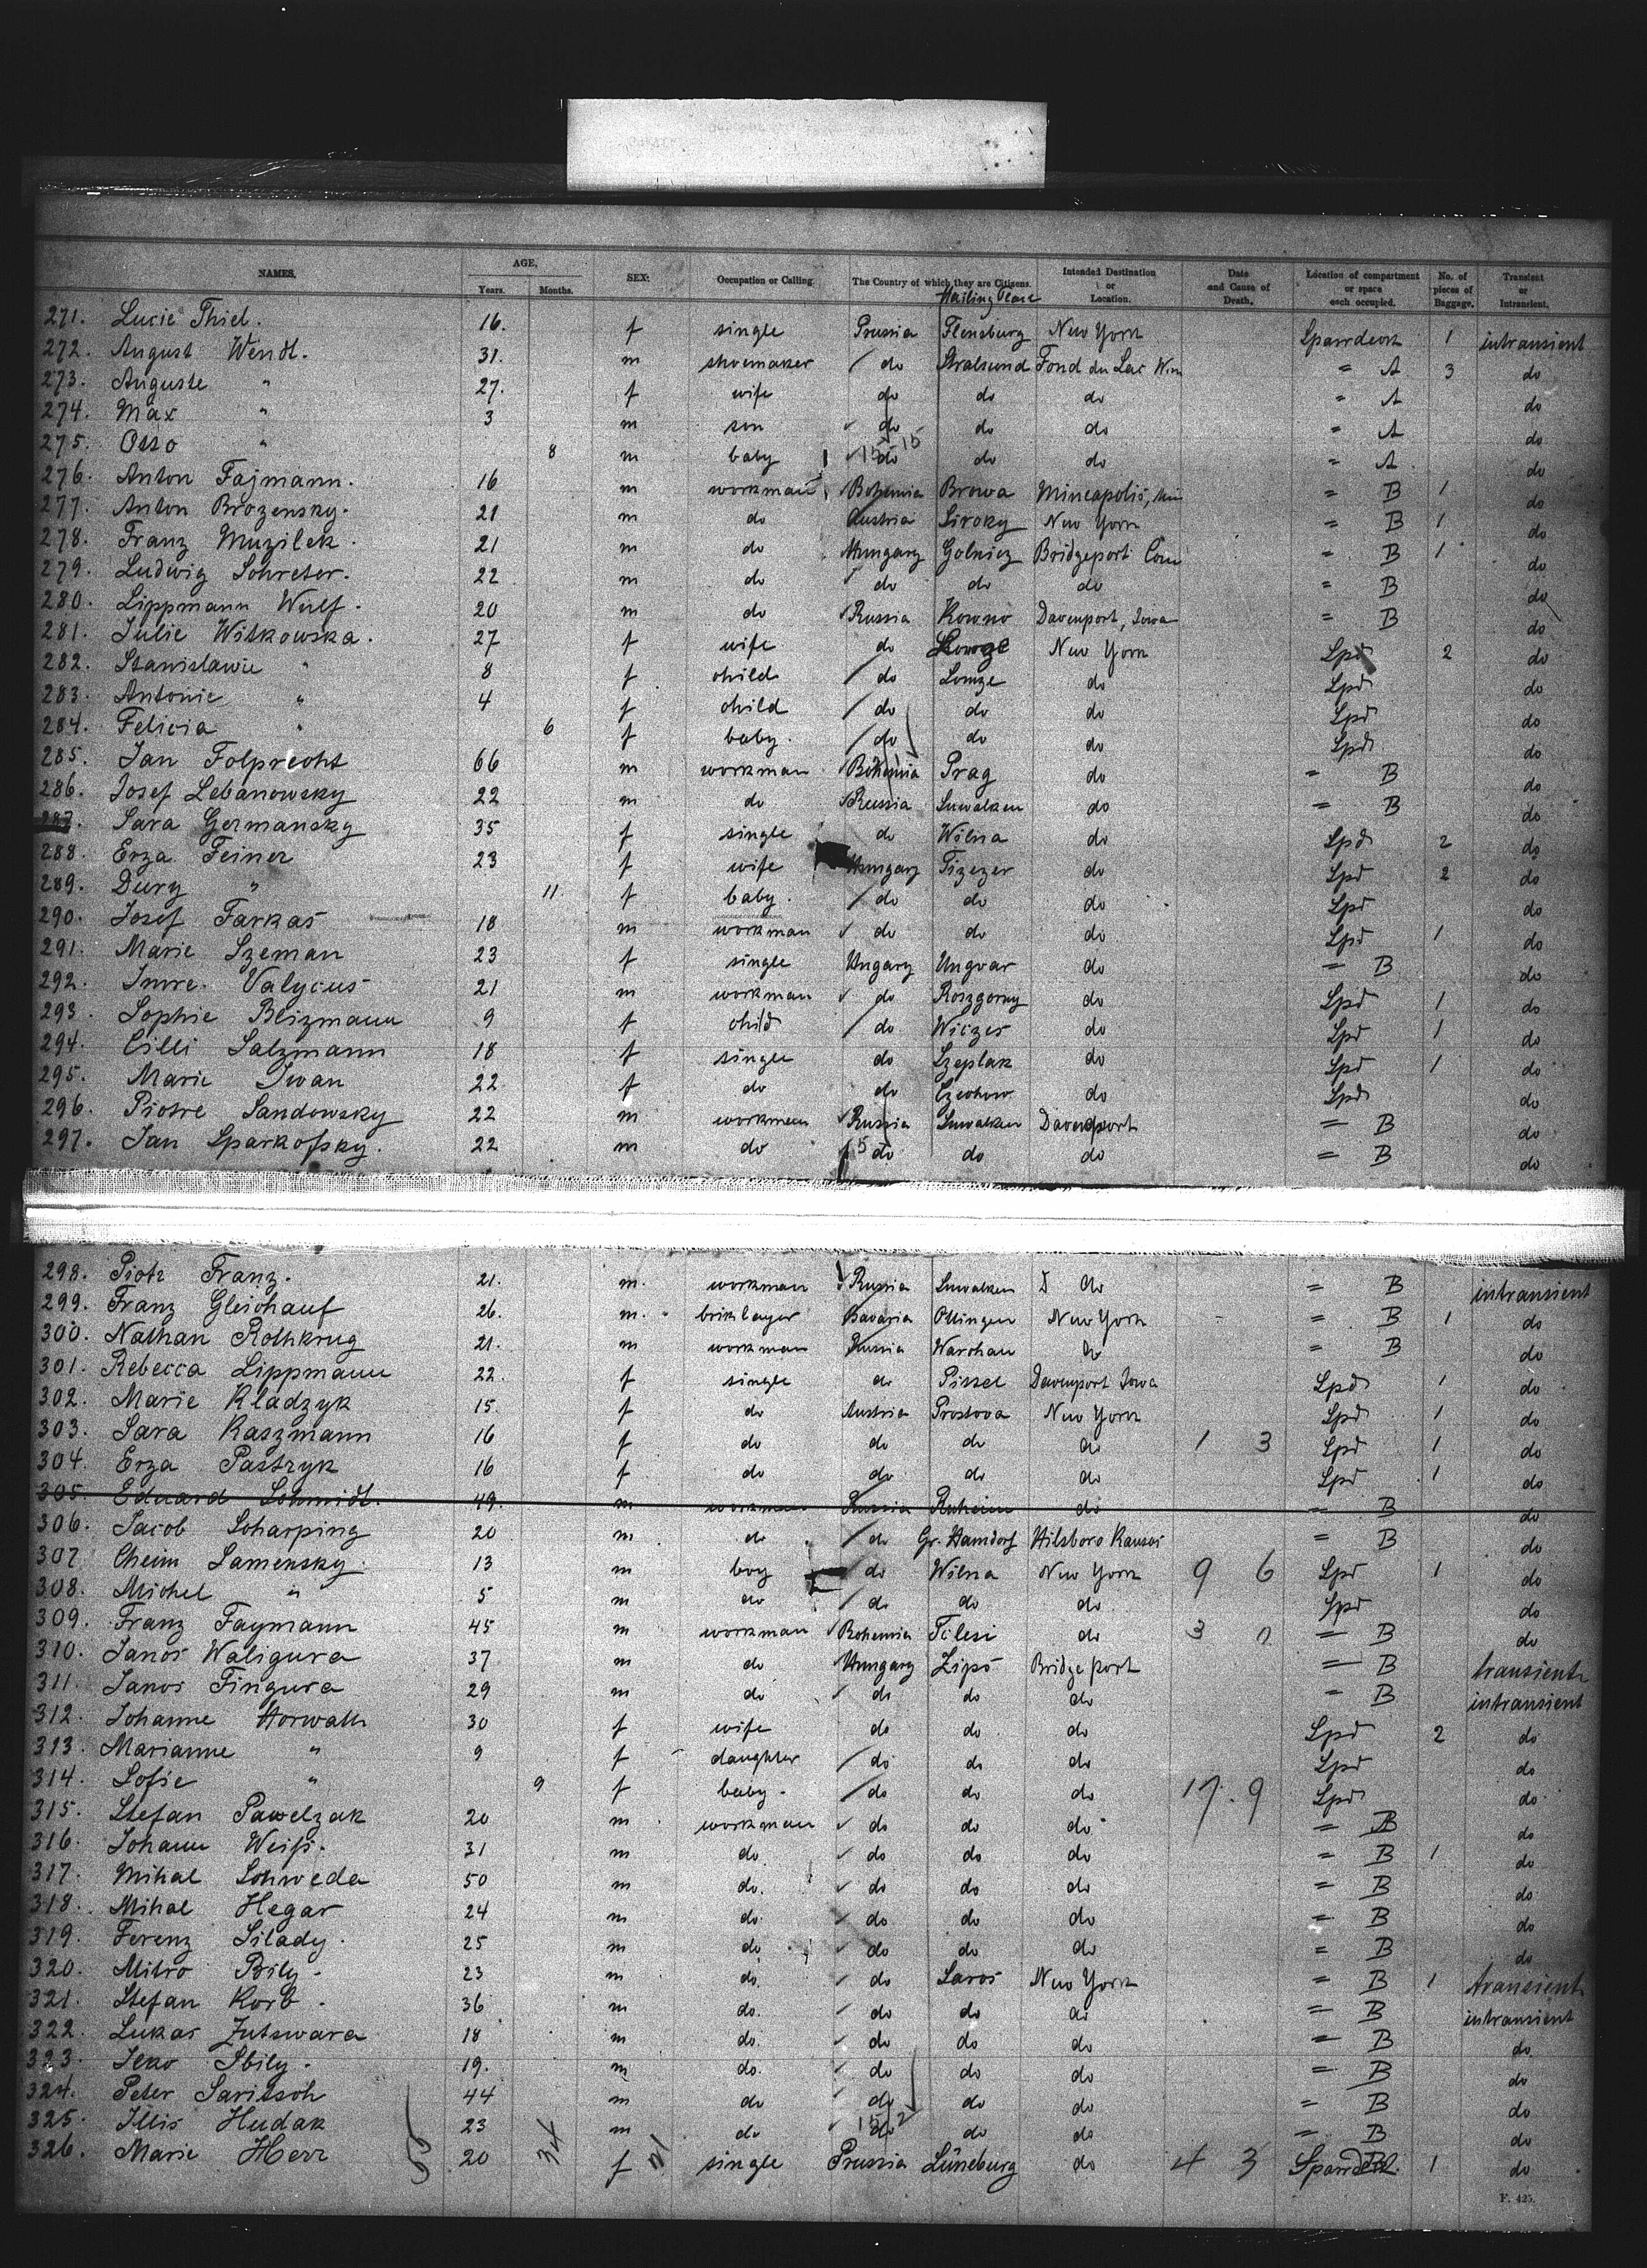 NAMES. AGE. Years. Months. SEX. Occupation or Calling. The Country of which they are Citizens. Mailing Place Intended Destination or Location. Date and Cause of Death. Location of compartment or space each occupied. No. of pieces of Baggage. Transient or Intransient.
271. Lucie Thiel. 16. f single Prussia Flensburg New York Sparrdeck 1 intransient
272. August Wendt. 31. m shoemaker do Stralsund Fond du Lac " A 3 do
273. Auguste " 27. f wife do do do " A do
274. Max " 3 m son do do do " A do
275. Otto " 8 m baby do do do " A do
276. Anton Fajmann. 16 m workman Bohemia Browa Mineapolis, Min " B 1 do
277. Anton Brozensky. 21 m do Austria Siroky New York " B 1 do
278. Franz Muzilek. 21 m do Hungary Golnicz Bridgeport Conn " B 1 do
279. Ludwig Schreter. 22 m do do do do " B do
280. Lippmann Wulf. 20 m do Russia Kowno Davenport, Iowa " B do
281. Julie Witkowska. 27 f wife do New York Spd 2 do
282. Stanislawie " 8 f child do Lomze do Spd do
283. Antonie " 4 f child do do do Spd do
284. Felicia " 6 f baby. do do do Spd do
285. Jan Folprecht 66 m workman Bohemia Prag do " B do
286. Josef Lebanowsky 22 m do Russia Suwalken do " B do
287. Sara Germansky 35 f single do Wilna do Spd 2 do
288. Erza Feiner 23 f wife Hungary Tizezer do Spd 2 do
289. Dury " 11. f baby. do do do Spd do
290. Josef Farkas 18 m workman do do do Spd 1 do
291. Marie Szeman 23 f single Ungary Ungvar do = B do
292. Imre. Valycus 21 m workman do Roszgony do Spd 1 do
293. Sophie Blizmann 9 f child do Wiczes do Spd 1 do
294. Cilli Salzmann 18 f single do Szeplak do Spd 1 do
295. Marie Iwan 22 f do do do Spd do
296. Piotre Sandowsky 22 m workman Russia Suwalken Davenport = B do
297. Jan Sparkofsky. 22 m do do do do = B do
298. Piotr Franz. 21. m. workman Russia Suwalken do = B intransient
299. Franz Gleichauf 26. m. briklayer Bavaria Ottingen New York = B 1 do
300. Nathan Rothkrug 21. m workman Russia Warchau do = B do
301. Rebecca Lippmann 22. f single do Pissel Davenport Iowa Spd 1 do
302. Marie Kladzyk 15. f do Austria Prostova New York Spd 1 do
303. Sara Kaszmann 16 f do do do do 1 3 Spd 1 do
304. Erza Pastzyk 16 f do do do do Spd 1 do
305. Eduard Schmidt. 49. m workman Russia do = B do
306. Jacob Scharping 20 m do do Gr. Hamdorf Hilsboro Kansas = B do
307 Cheim Samensky 13 m boy do Wilna New York 9 6 Spd 1 do
308. Michel " 5 m do do do do Spd do
309. Franz Faymann 45 m workman Bohemia Tilesi do 3 = B do
310. Janos Waligura 37 m do Hungary Zips Bridgeport = B transient
311. Janos Fingura 29 m do do do do = B intransient
312. Johanne Horwath 30 f wife do do do Spd 2 do
313. Marianne " 9 f daughter do do do Spd do
314. Sofie " 9 f baby. do do do 17. 9 Spd do
315. Stefan Pawelzak 20 m workman do do do = B do
316. Johann Weiß. 31 m do do do do = B 1 do
317. Mihal Schweda 50 m do. do do do = B do
318. Mihal Hegar 24 m do. do do do = B do
319. Ferenz Silady. 25 m do do do do = B do
320. Mitro Bily. 23 m do. do Saros New York = B 1 transient
321. Stefan Korb. 36 m do. do do do = B intransient
322. Lukas Zutswara 18 m do. do do do = B do.
323. Ilko Sbily. 19. m do. do do do = B do
324. Peter Saritsch 44 m do do do do = B do
325. Illis Hudak 23 m do do do do = B do
326. Marie Herr 20 34 f 21 single Prussia Lüneburg do 4 3 Sparrdeck 1 do
F. 425.